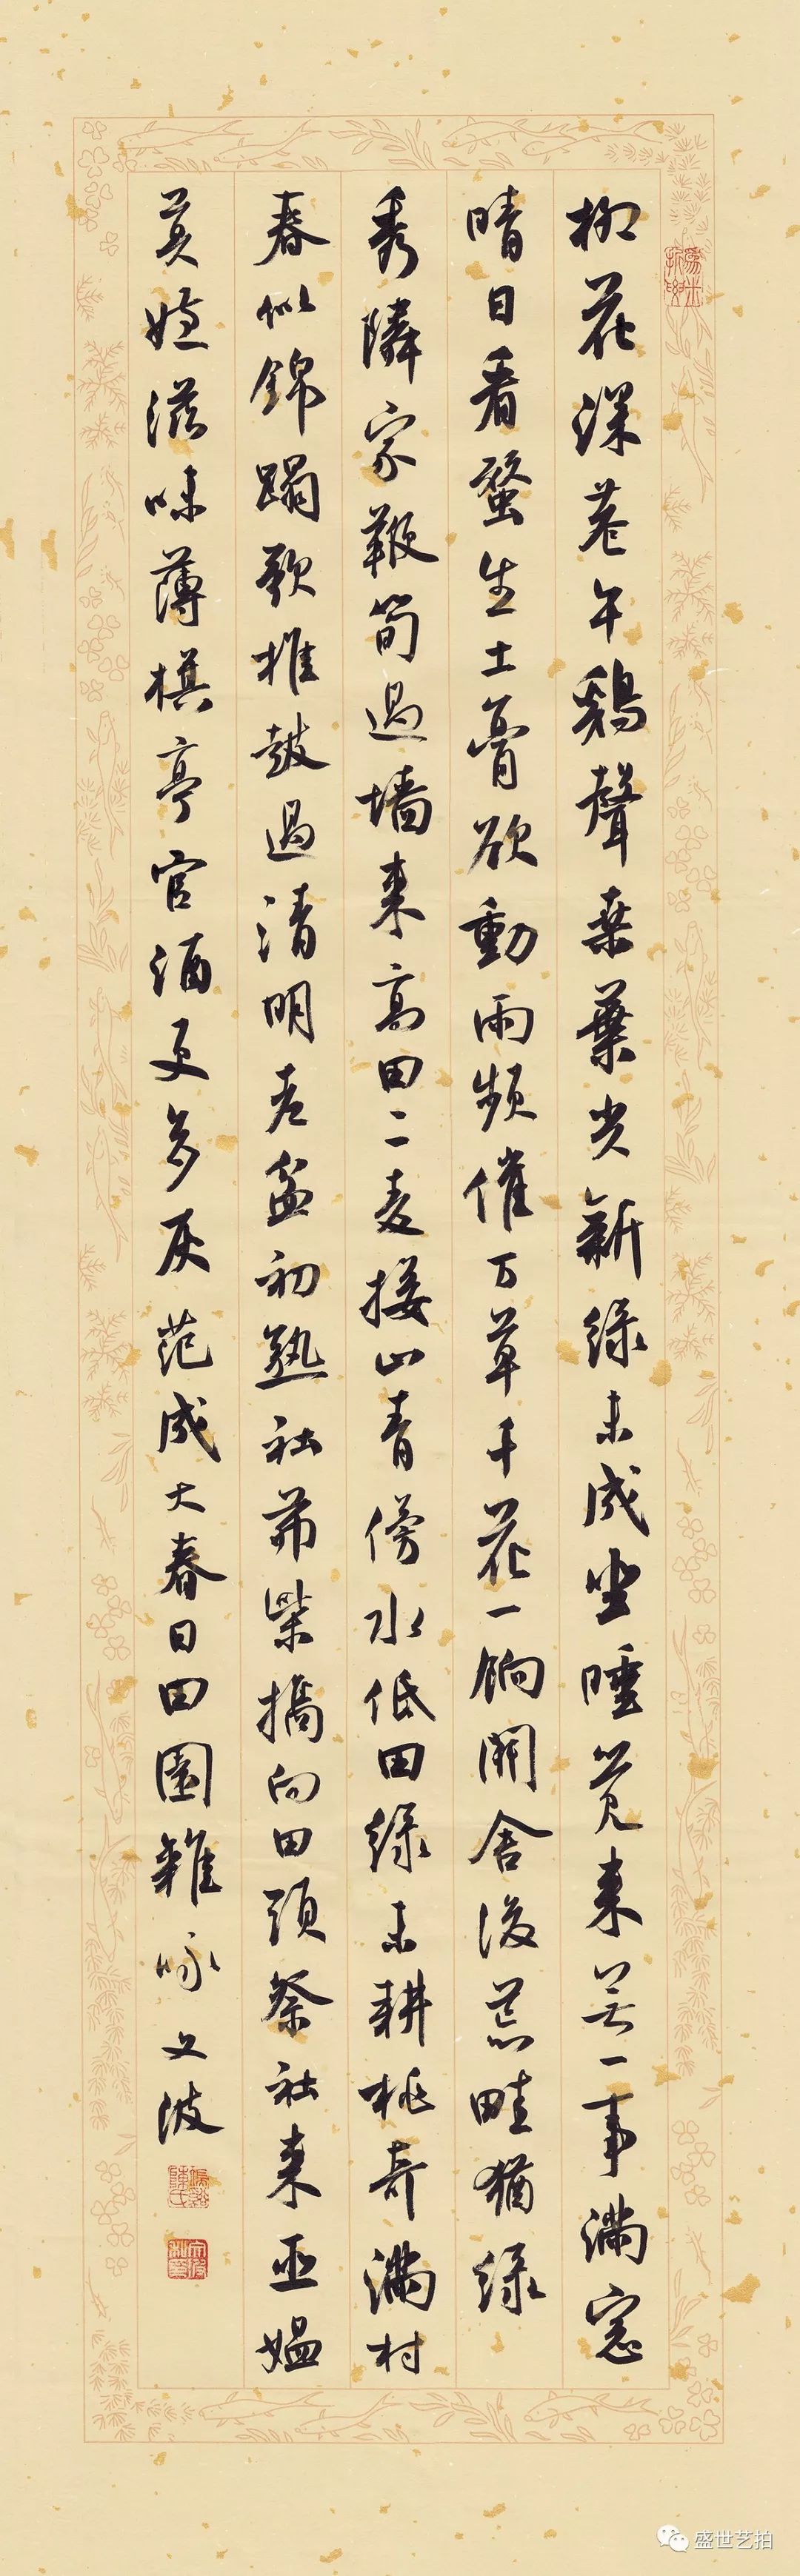 柳花深巷午鷄聲桑葉尖新緑未成坐睡覺来無一事滿窓
晴日看蠶生土膏欲動雨頻催万草千花一餉開舍後荒畦猶緑
秀隣家鞭筍過墙来高田二麦接山青傍水低田緑未耕桃杏滿村
春似錦蹋歌椎鼓過清明老盆初熟社茅柴攜向田頭祭社来巫媪
莫嫌滋味薄旗亭官酒更多灰范成大春日田園雜咏文波
盛世艺拍